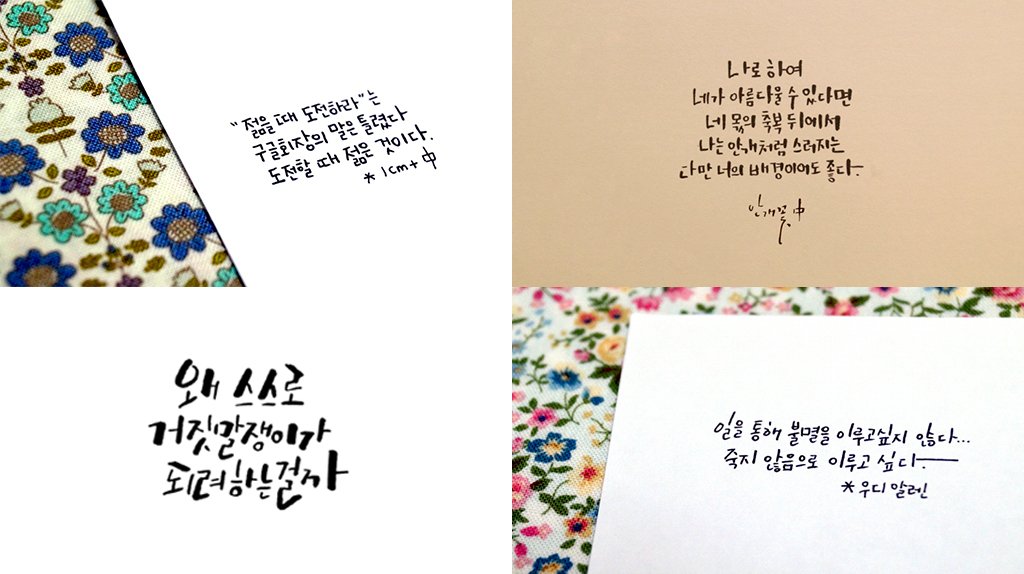 "젊을때 도전하라"는
구글회장의 말은 틀렸다
도전할 때 젊은 것이다.
* 1cm+ 中
나로 하여
네가 아름다울 수 있다면
네 몫의 축복 뒤에서
나는 안개처럼 스러지는
다만 너의 배경이어도 좋다.
안개꽃 中
왜 스스로
거짓말쟁이가
되려하는걸까
일을 통해 불멸을 이루고싶지 않다...
죽지 않음으로 이루고 싶다.
* 우디 알렌